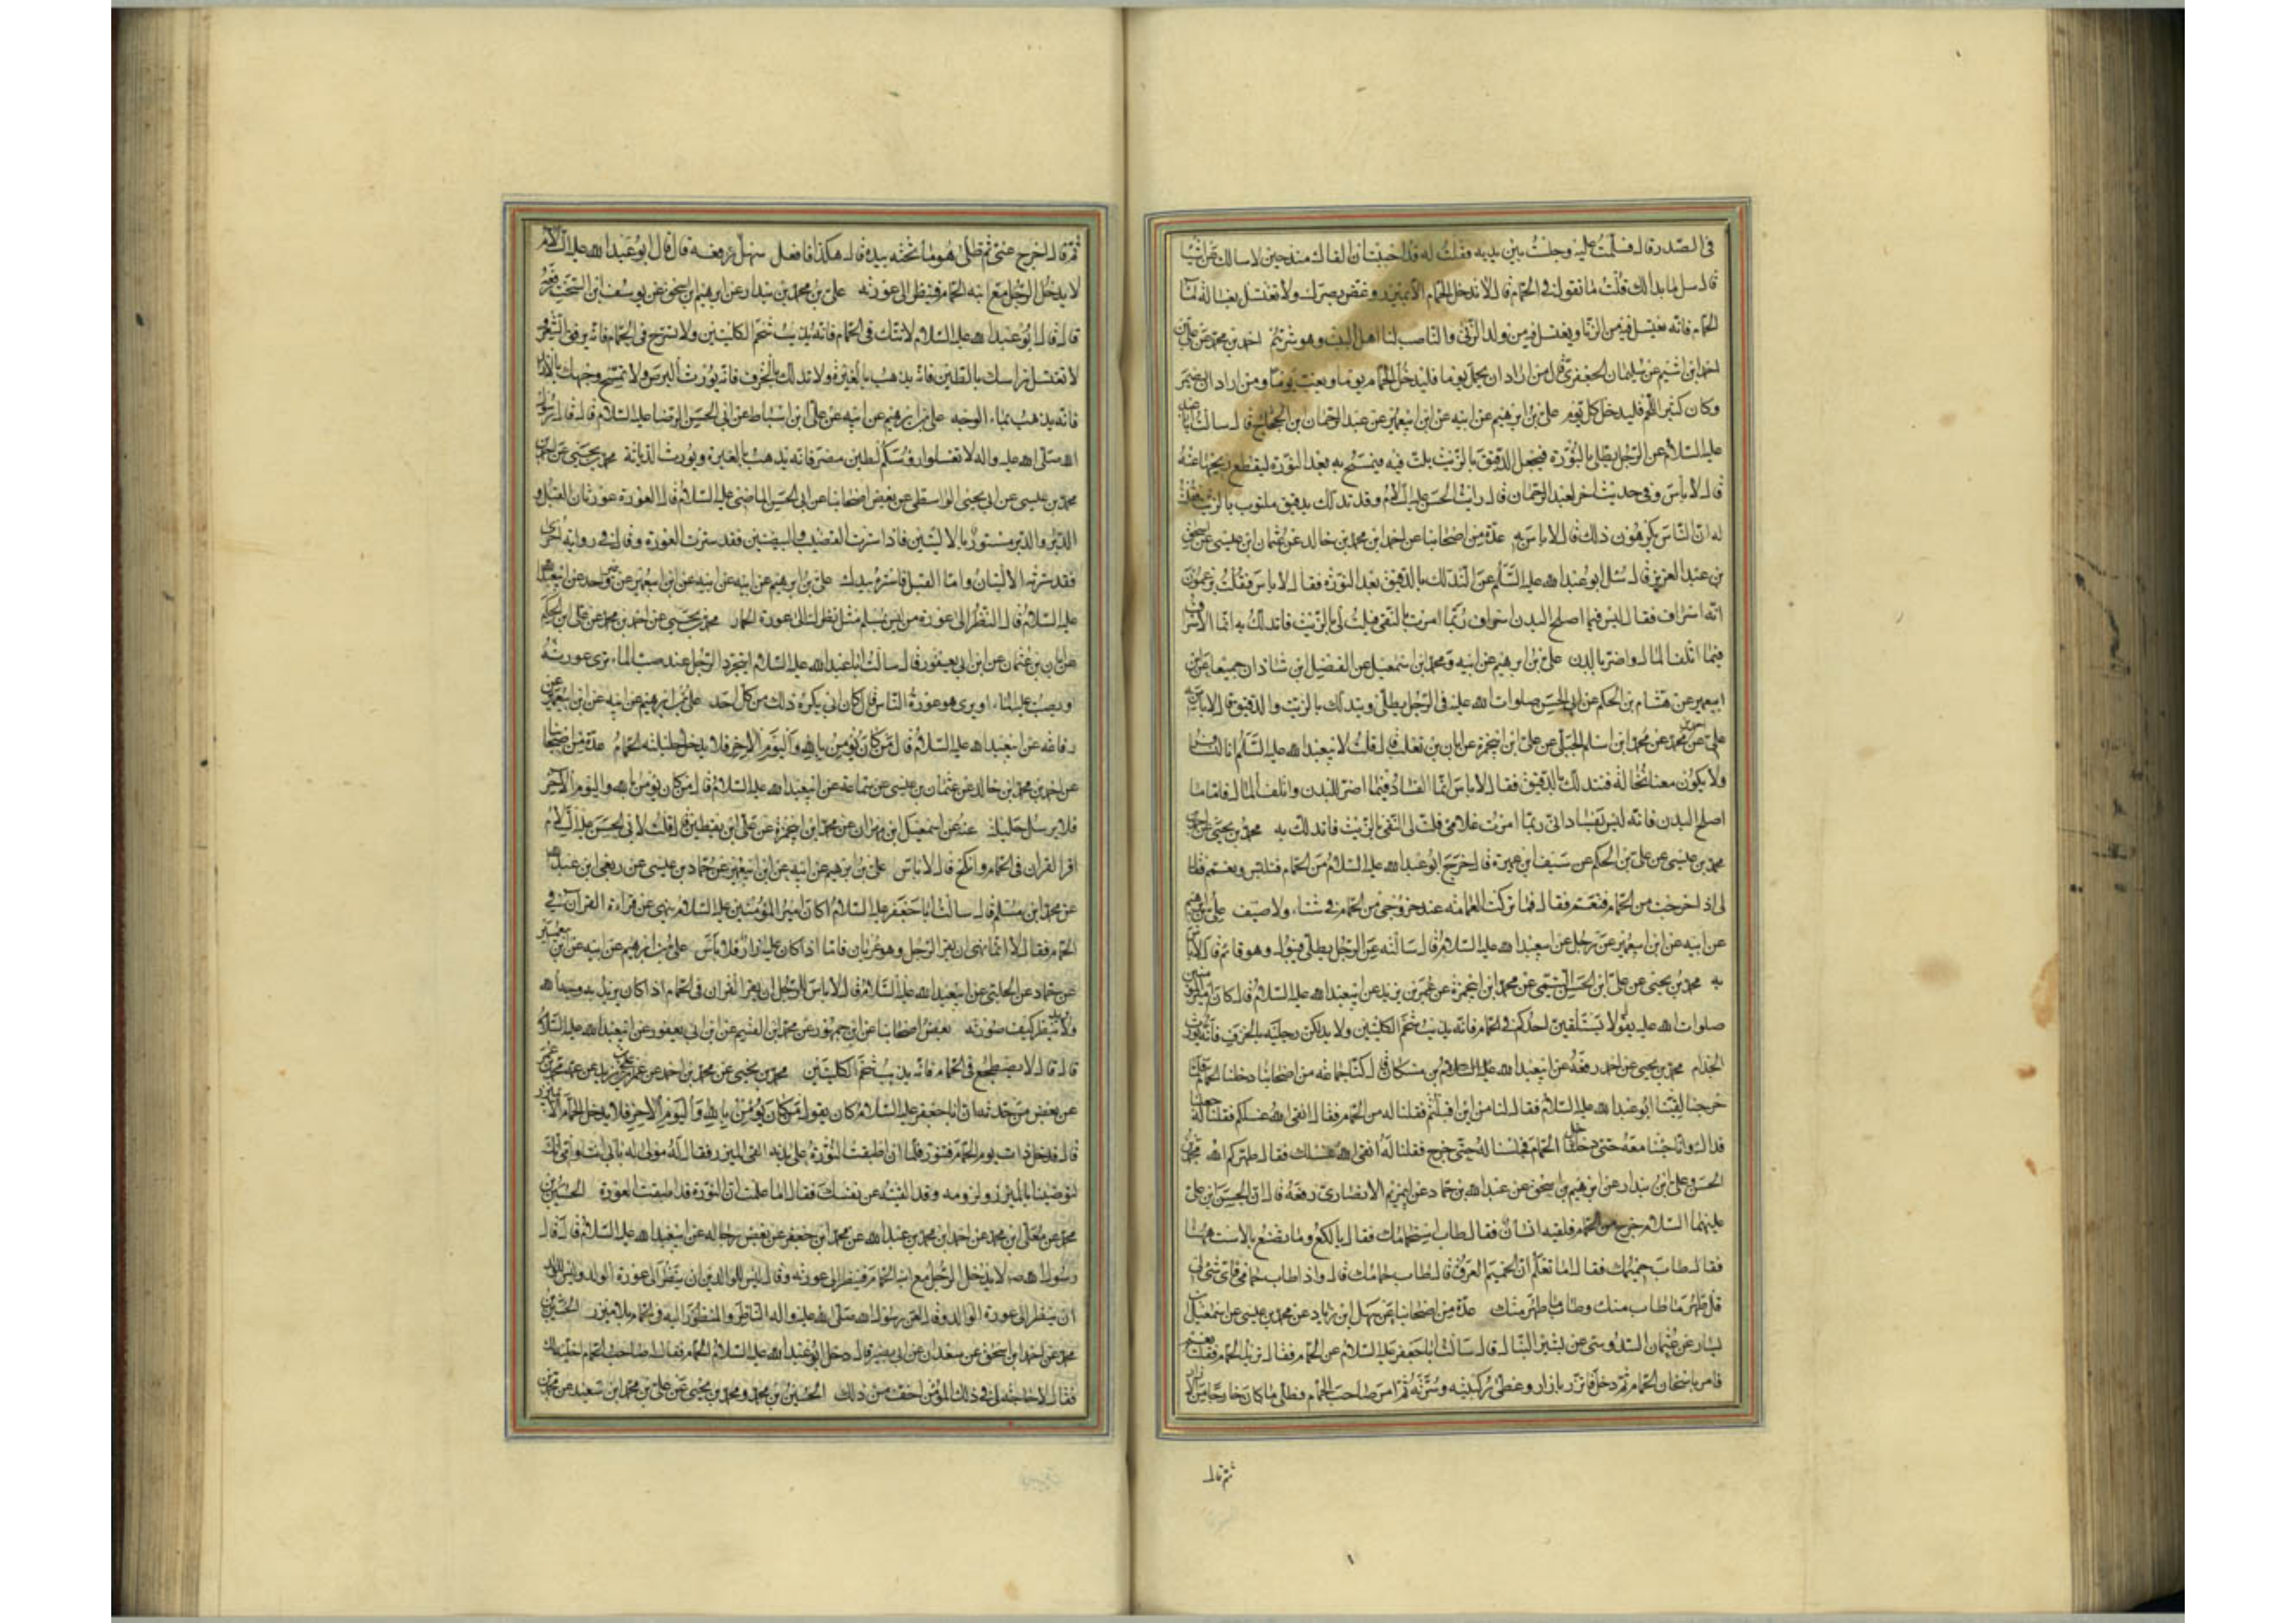 في الصدر قال فسلمت عليه وجلست بين يديه فقلت له قد احببت ان القاك منذ حين لاسالك عن اشيا
قال سل ما بدا لك قلت ما تقول في الحمام قال لا تدخل الحمام الا بميزر وغض بصرك ولا تغتسل بغسالة ما
الحمام فانه يغتسل فيه من الزنا ويغتسل فيه من ولد الزنى والناصب لنا اهل البيت وهو شرهم احمد بن محمد عن علي بن
احمد ابن اشيم عن سليمان الجعفري قال من اراد ان يحمل يوما فليدخل الحمام يوما ويغب يوما ومن اراد ان يضمر
وكان كثير اللحم فليدخل كل يوم علي بن ابرهيم عن ابيه عن ابن ابيعمير عن عبد الرحمان بن الحجاج قال سالت ابا عبد الله
عليه السلام عن الرجل يطلي بالنورة فيجعل الدقيق بالزيت يلت فيه فيتمسح به بعد النورة ليقطع ريحها عنه
قال لا باس وفي حديث اخر لعبد الرحمان قال رايت ابا الحسن عليه السلام وقد تدلك بدقيق ملتوت بالزيت فقلت
له ان الناس يكرهون ذلك قال لا باس به عدة من اصحابنا عن احمد ابن محمد بن خالد عن عثمان ابن عيسى عن اسحق
بن عبد العزيز قال سئل ابو عبد الله عليه السلام عن التدلك بالدقيق بعد النورة فقال لا باس فقلت يزعمون
انه اسراف فقال ليس فيما اصلح البدن اسراف ربما امرت بالنقي فيلت لي بالزيت فاتدلك به انما الاسراف
فيما اتلف المال واضر بالبدن علي بن ابرهيم عن ابيه ومحمد ابن اسمعيل عن الفضل ابن شاذان جميعا عن ابن
ابيعمير عن هشام بن الحكم عن ابي الحسن صلوات الله عليه في الرجل يطلي ويتدلك بالزيت والدقيق قال لا باس به
علي عن محمد عن محمد ابن اسلم الجبلي عن علي ابن ابيحمزة عن ابان بن تغلب قال قلت لابيعبد الله عليه السلام انا لنسافر
ولا يكون معنا نخالة فنتدلك بالدقيق فقال لا باس انما الفساد فيما اضر بالبدن واتلف المال فاما ما
اصلح البدن فانه ليس بفساد اني ربما امرت غلامي فلت لي النقي بالزيت فاتدلك به محمد بن يحيى عن احمد بن
محمد بن عيسى عن علي بن الحكم عن سيف ابن عميرة قال خرج ابو عبد الله عليه السلام من الحمام فتلبس وتعمم فقال
لي اذا خرجت من الحمام فتعمم فقال فما تركت العمامة عند خروجي من الحمام في شتاء ولا صيف علي بن ابرهيم
عن ابيه عن ابن ابيعمير عن رجل عن ابيعبد الله عليه السلام قال سالته عن الرجل يطلي فيبول وهو قائم قال لا باس
به محمد بن يحيى عن علي ابن الحسن التيمي عن محمد ابن ابيحمزة عن عمر بن يزيد عن ابيعبد الله عليه السلام قال كان امير المؤمنين
صلوات الله عليه يقول لا يستلقين احدكم في الحمام فانه يذيب شحم الكليتين ولا يدلكن رجليه بالخزف فانه يورث
الجذام محمد بن يحيى عن احمد رفعه عن ابيعبد الله عليه السلام بن مسكان قال كنا جماعة من اصحابنا دخلنا الحمام فلما
خرجنا لقينا ابو عبد الله عليه السلام فقال لنا من اين اقبلتم فقلنا له من الحمام فقال انقى الله غسلكم فقلنا له جعلنا
فداك وانا جئنا معه حتى دخل الحمام فجلسنا له حتى خرج فقلنا له انقى الله غسلك فقال طهركم الله محمد بن
الحسن وعلي ابن بندار عن ابرهيم بن اسحق عن عبد الله بن حماد عن ابيمريم الانصاري رفعه قال ان الحسن ابن علي
عليهما السلام خرج من الحمام فلقيه انسان فقال طاب استحمامك فقال يا لكع وما تصنع بالاست ههنا
فقال طاب حميمك فقال اما تعلم ان الحميم العرق قال طاب حمامك قال واذا طاب حمامي فاي شي لي
قل طهر ما طاب منك وطاب ما طهر منك عدة من اصحابنا عن سهل ابن زياد عن محمد بن عيسى عن اسمعيل بن
يسار عن عثمان السدوسي عن بشير النبال قال سالت ابا جعفر عليه السلام عن الحمام فقال تريد الحمام فقلت نعم
فامر باسخان الحمام ثم دخل فاتزر بازار وغطى ركبتيه وسرته ثم امر صاحب الحمام فطلى ما كان خارجا من الازار
ثم قال
ثم قال اخرج عني ثم طلى هو ما تحته بيده قال هكذا فافعل سهل رفعه قال قال ابو عبد الله عليه السلام
لا يدخل الرجل مع ابنه الحمام فينظر الى عورته علي بن محمد بن بندار عن ابرهيم ابن اسحق عن يوسف ابن السخت رفعه
قال قال ابو عبد الله عليه السلام لا تتك في الحمام فانه يذيب شحم الكليتين ولا تسرح في الحمام فانه يرقق الشعر
لا تغتسل راسك بالطين فانه يذهب بالغيرة ولا تدلك بالخزف فانه يورث البرص ولا تمسح وجهك بالازار
فانه يذهب بماء الوجه علي بن ابرهيم عن ابيه عن علي ابن اسباط عن ابي الحسن الرضا عليه السلام قال قال رسول
الله صلى الله عليه واله لا تغسلوا رؤسكم بطين مصر فانه يذهب بالغيرة ويورث الدياثة محمد بن يحيى عن احمد بن
محمد بن عيسى عن ابي يحيى الواسطي عن بعض اصحابنا عن ابي الحسن الماضي عليه السلام قال العورة عورتان القبل و
الدبر والدبر مستور بالاليتين فاذا سترت القضيب والبيضتين فقد سترت العورة وقال في رواية اخرى
فقد سترته الاليتان واما القبل فاستره بيدك علي بن ابرهيم عن ابيه عن ابيه عن ابن ابيعمير عن غير واحد عن ابيعبد الله
عليه السلام قال النظر الى عورة من ليس بمسلم مثل نظرك الى عورة الحمار محمد بن يحيى عن احمد بن محمد عن علي ابن الحكم
عن ابان بن عثمان عن ابن ابي يعفور قال سالت ابا عبد الله عليه السلام ايتجرد الرجل عند صب الماء يرى عورته
او يصب عليه الماء او يرى هو عورة الناس قال كان ابي يكره ذلك من كل احد علي بن ابرهيم عن ابيه عن ابن ابيعمير عن
رفاعه عن ابيعبد الله عليه السلام قال من كان يؤمن بالله واليوم الاخر فلا يدخل حليلته الحمام عدة من اصحابنا
عن احمد بن محمد ابن خالد عن عثمان بن عيسى عن سماعة عن ابيعبد الله عليه السلام قال من كان يؤمن بالله واليوم الاخر
فلا يرسل حليلته عنه عن اسمعيل ابن مهران عن محمد ابن ابيحمزة عن علي ابن يقطين قال قلت لابي الحسن عليه السلام
اقرا القران في الحمام وانكح قال لا باس علي بن ابرهيم عن ابيه عن ابن ابيعمير عن حماد بن عيسى عن ربعي ابن عبد الله
عن محمد ابن مسلم قال سالت ابا جعفر عليه السلام اكان امير المؤمنين عليه السلام ينهى عن قراءة القران في
الحمام فقال لا انما نهى ان يقرا الرجل وهو عريان فاما اذا كان عليه ازار فلا باس علي بن ابرهيم عن ابيه عن ابن ابيعمير
عن حماد عن الحلبي عن ابيعبد الله عليه السلام قال لا باس للرجل ان يقرا القران في الحمام اذا كان يريد به وجه الله
ولا يريد ينظر كيف صوته بعض اصحابنا عن ابن جمهور عن محمد ابن القسم عن ابن ابي يعفور عن ابيعبد الله عليه السلام
قال قال لا تضطجع في الحمام فانه يذيب شحم الكليتين محمد بن يحيى عن محمد بن احمد عن عمر بن علي بن عمر بن يزيد عن عمه محمد بن عمر
عن بعض من حدثه ان ابا جعفر عليه السلام كان يقول من كان يؤمن بالله واليوم الاخر فلا يدخل الحمام الا بميزر
قال فدخل ذات يوم الحمام فتنور فلما ان اطبقت النورة على بدنه القى الميزر فقال له مولى له بابي انت وامي انك
لتوصينا بالميزر ولزومه وقد القيته عن نفسك فقال اما علمت ان النورة قد اطبقت العورة الحسين بن
محمد عن معلى ابن محمد عن احمد ابن محمد بن عبد الله عن محمد ابن جعفر عن بعض رجاله عن ابيعبد الله عليه السلام قال قال
رسول الله ص لا يدخل الرجل مع ابنه الحمام فينظر الى عورته وقال ليس للوالدين ان ينظرا الى عورة الولد وليس للولد
ان ينظر الى عورة الوالد وقال لعن رسول الله صلى الله عليه واله الناظر والمنظور اليه في الحمام بلا ميزر الحسين بن
محمد عن احمد ابن اسحق عن سعدان عن ابي بصير قال دخل ابو عبد الله عليه السلام الحمام فقال له صاحب الحمام اخليه لك
فقال لا حاجة لي في ذلك المؤمن اخف من ذلك الحسين بن محمد ومحمد بن يحيى عن علي بن محمد ابن سعيد عن محمد بن